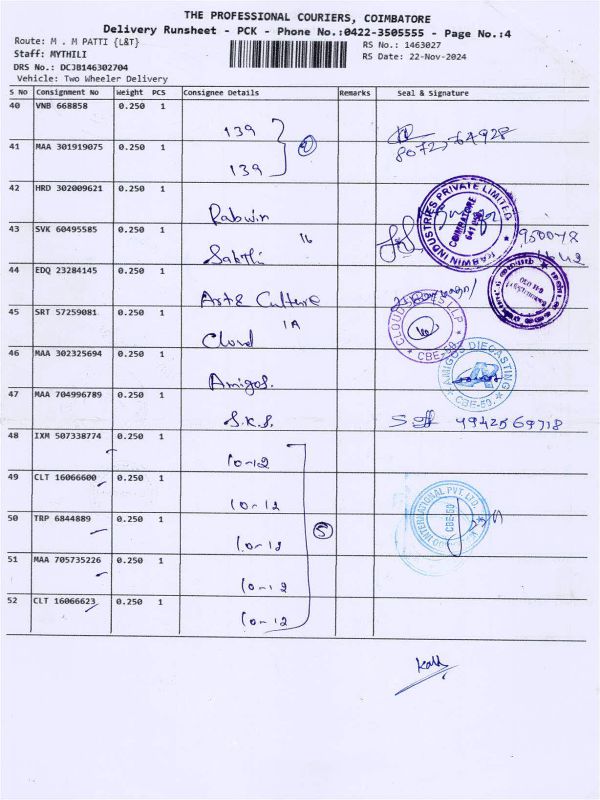 THE PROFESSIONAL COURIERS, COIMBATORE
Delivery Runsheet - PCK - Phone No.:0422-3505555 - Page No.:4
Route: M . M PATTI {L&T}
RS No.: 1463027
Staff: MYTHILI
RS Date: 22-Nov-2024
DRS No.: DCJB146302704
Vehicle: Two Wheeler Delivery
S No Consignment No Weight PCS Consignee Details Remarks Seal & Signature
40 VNB 668858 0.250 1 139
41 MAA 301919075 0.250 1 139
42 HRD 302009621 0.250 1 Rabwin
RABWIN INDUSTRIES PRIVATE LIMITED
COIMBATORE
43 SVK 60495585 0.250 1 Sakthi 16
44 EDQ 23284145 0.250 1 Art & Culture
45 SRT 57259081 0.250 1 Cloud 1A
CLOUD LLP
CBE-50
46 MAA 302325694 0.250 1 Amigos.
AMIGOS DIECASTING
CBE-50.
47 MAA 704996789 0.250 1 S.K.S.
48 IXM 507338774 0.250 1 10-12
49 CLT 16066600 0.250 1 10-12
50 TRP 6844889 0.250 1 10-12
5
INTERNATIONAL PVT. LTD.
CBE-50
51 MAA 705735226 0.250 1 10-12
52 CLT 16066623 0.250 1 10-12